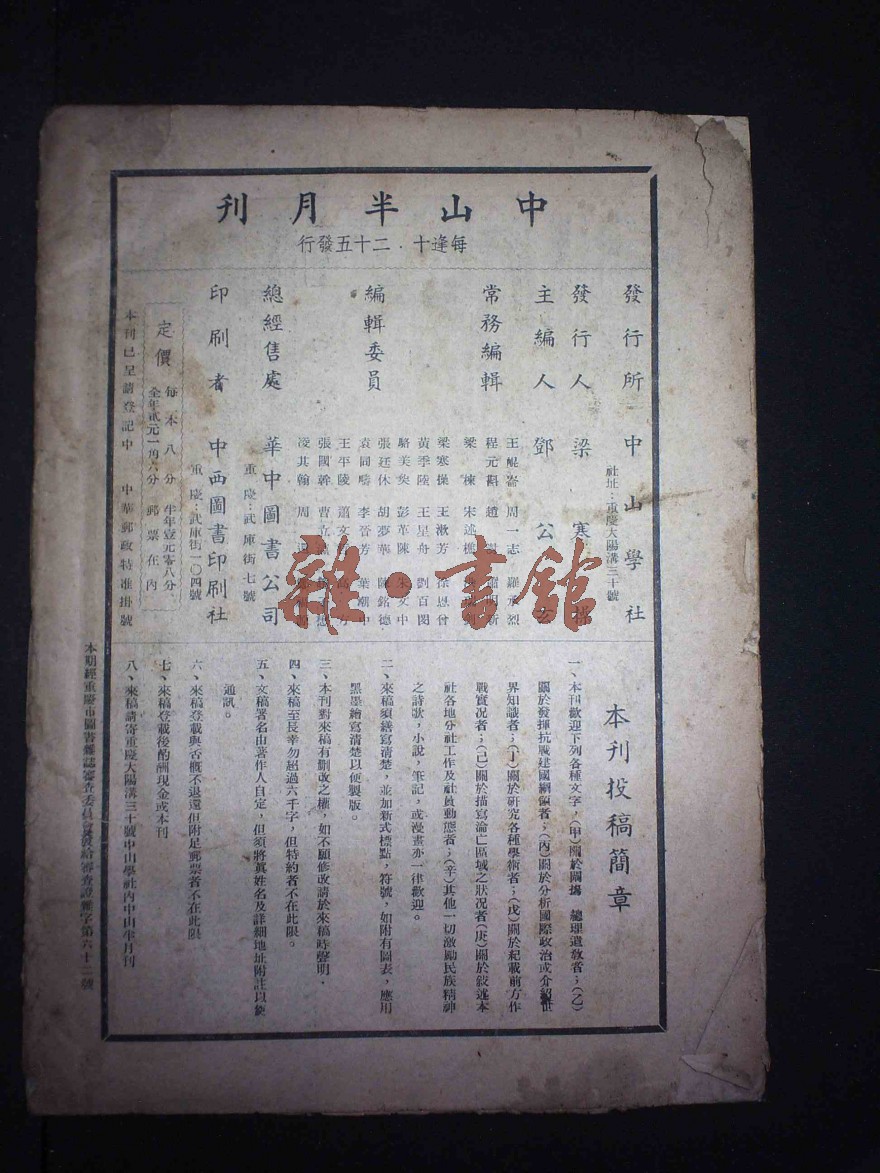 中山半月刊
每逢十．二十五發行
發行所 中山學社
社址：重慶大陽溝三十號
發行人 梁寒操
主編人 鄧公玄
常務編輯
王崐崙 周一志 羅承烈
程元斟 趙
梁棟 宋述樵
編輯委員
梁寒操 王漱芳 徐恩曾
黃季陸 王星舟 劉百閔
駱美奐 彭革陳 朱文中
張廷休 胡夢華 陳銘德
袁同疇 李晉芳 葉溯中
王平陵
張國幹 曹立
凌其翰 周
總經售處 華中圖書公司
重慶：武庫街七號
印刷者 中西圖書印刷社
重慶：武庫街一〇四號
定價
每本八分 半年壹元零八分
全年貳元一角六分 郵票在內
本刊已呈請登記中 中華郵政特准掛號
本刊投稿簡章
一、本刊歡迎下列各種文字，（甲）關於闡揚 總理遺敎者；（乙）
關於發揮抗戰建國綱領者；（丙）關於分析國際政治或介紹世
界知識者；（丁）關於研究各種學術者；（戊）關於紀載前方作
戰實況者；（己）關於描寫淪亡區域之狀況者（庚）關於敍述本
社各地分社工作及社員動態者；（辛）其他一切激勵民族精神
之詩歌，小說，筆記，或漫畫亦一律歡迎。
二、來稿須繕寫清楚，並加新式標點，符號，如附有圖表，應用
黑墨繪寫清楚以便製版。
三、本刊對來稿有刪改之權，如不願修改請於來稿時聲明，
四、來稿至長幸勿超過六千字，但特約者不在此限。
五、文稿署名由著作人自定，但須將真姓名及詳細地址附註以便
通訊。
六、來稿登載與否槪不退還但附足郵票者不在此限
七、來稿登載後酌酬現金或本刊
八、來稿請寄重慶大陽溝三十號中山學社內中山半月刊
本期經重慶市圖書雜誌審查委員會發給審查證雜字第六十二號
雜·書館